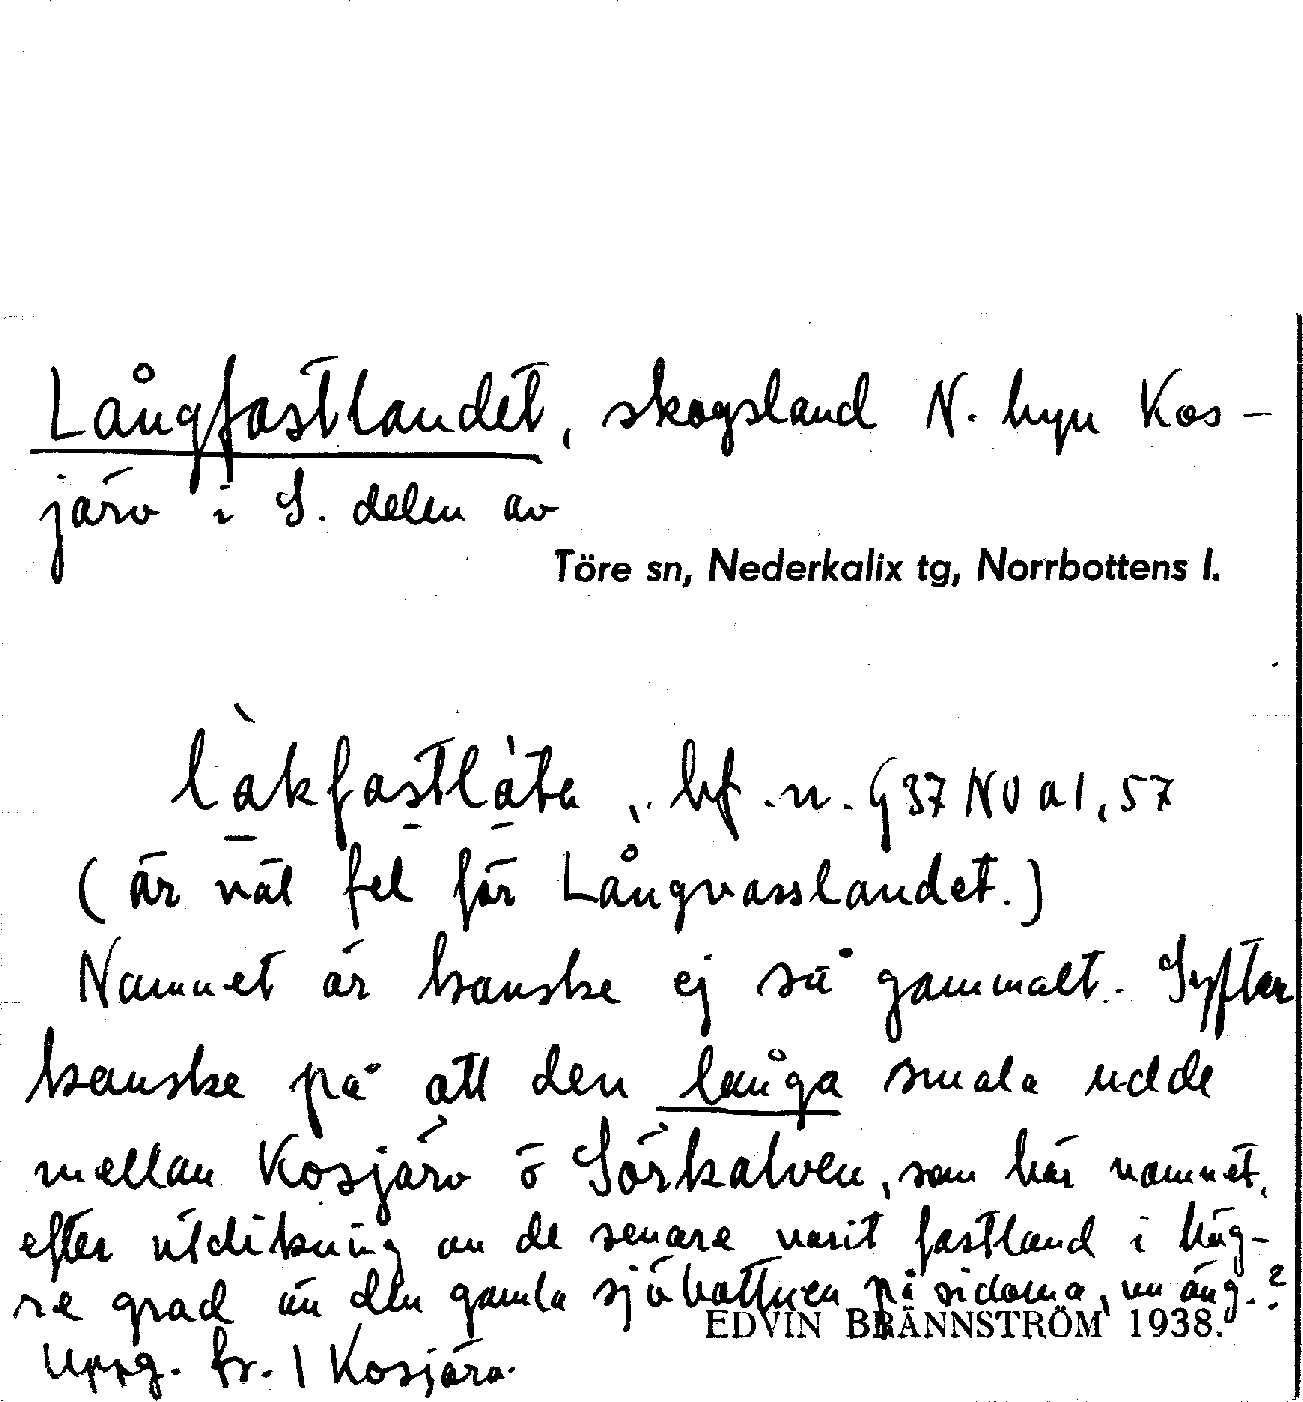 Långfastlandet, skogsland N. byn Kos-
järv i S. delen av
Töre sn, Nederkalix tg, Norrbottens l.
làkfastlàta, bf. n. G 37 NO a 1, 57
(är väl fel för Långvasslandet.)
Namnet är kanske ej så gammalt. Syftar
kanske på att den långa smala udde
mellan Kosjärv o Sörkalven, som bär namnet,
efter utdikning av de senare varit fastland i hög-
re grad än den gamla sjöbottnen på sidorna, nu äng.?
EDVIN BRÄNNSTRÖM 1938.
Uppg. fr. 1 Kosjärv.